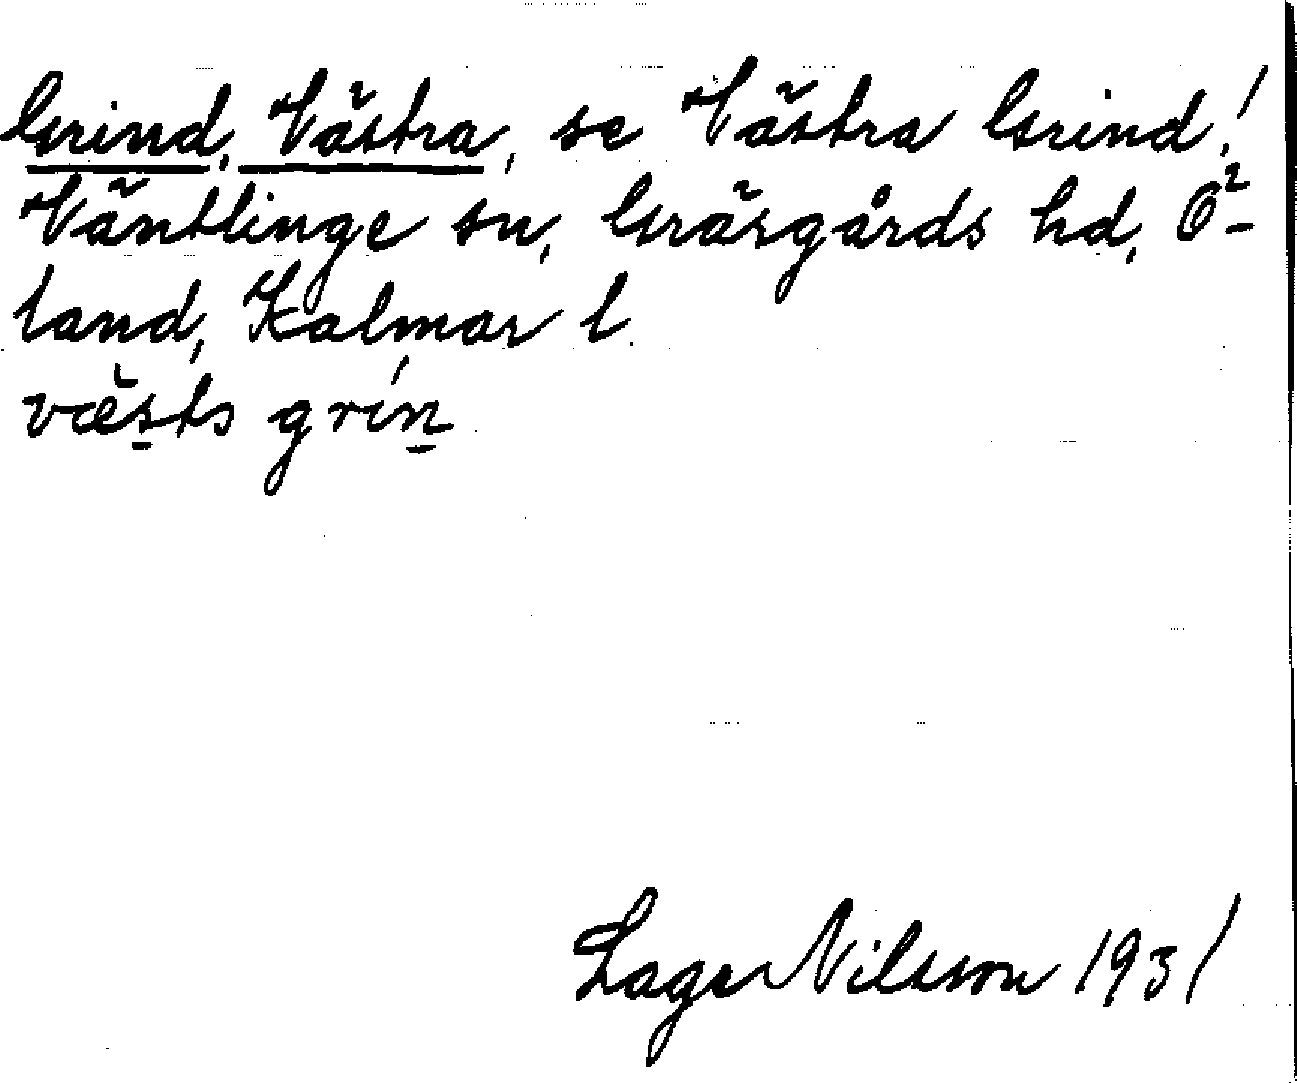 Grind, Västra, se Västra Grind!
Väntlinge sn, Gräsgårds hd, Ö-
land, Kalmar l.
væsts grin
Lage Nilsson 1931